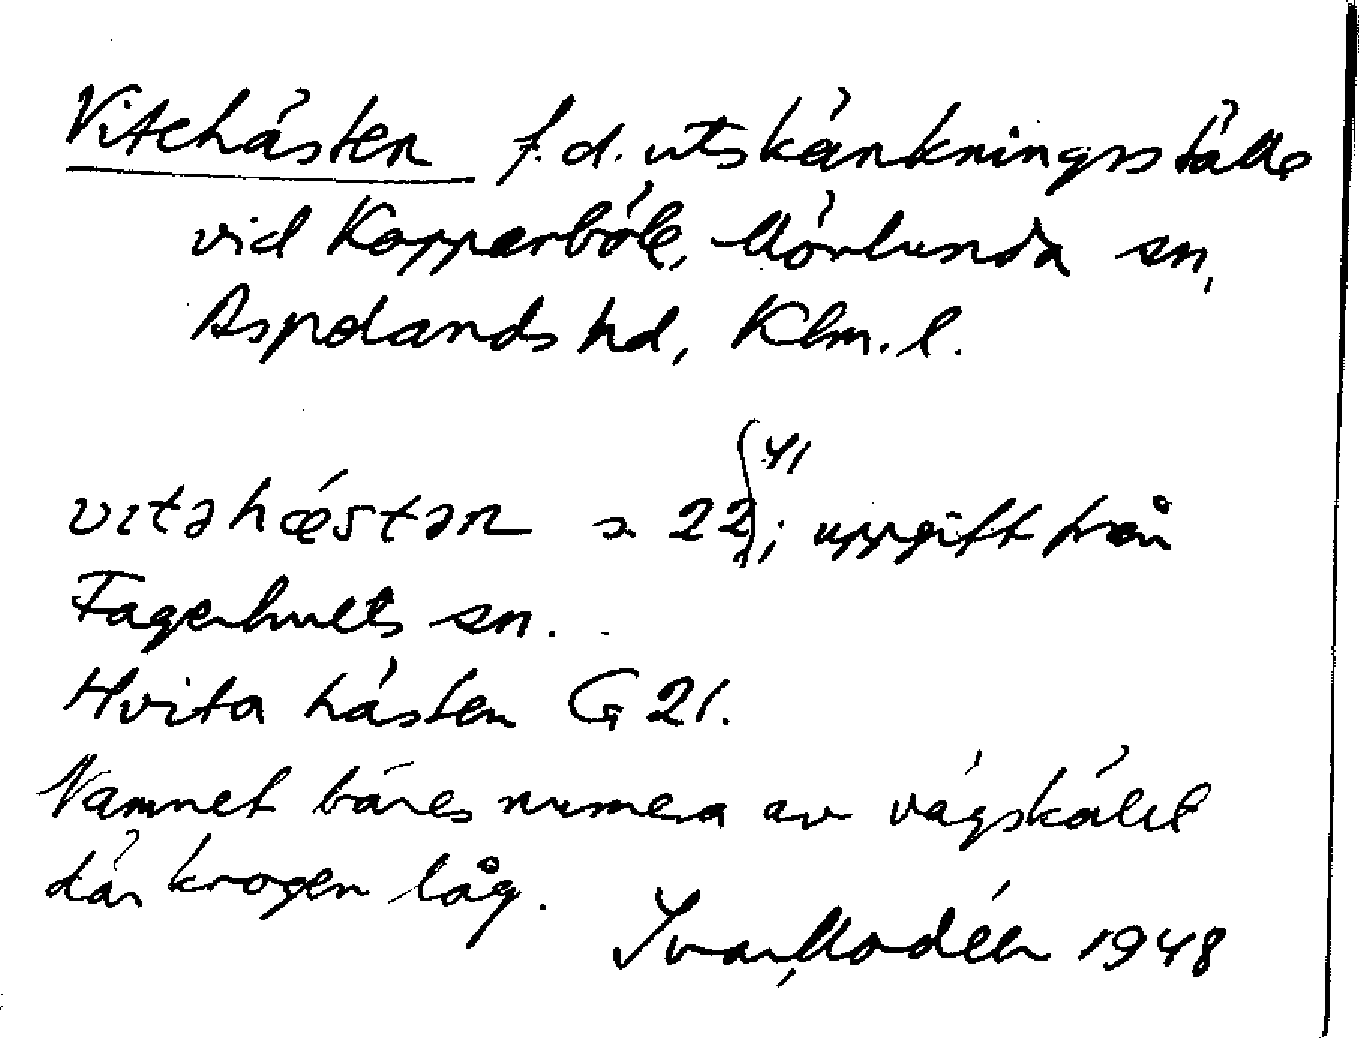 Vitehästen f.d. utskänkningsställe
vid Kopparböle, Mörlunda sn,
Aspelands hd, Klm. l.
vɪtəhǽstən 22; uppgift från
41
Fagerhults sn.
Hvita hästen G 21.
Namnet bäres numera av vägskälet
där krogen låg.
Ivar Modéer 1948